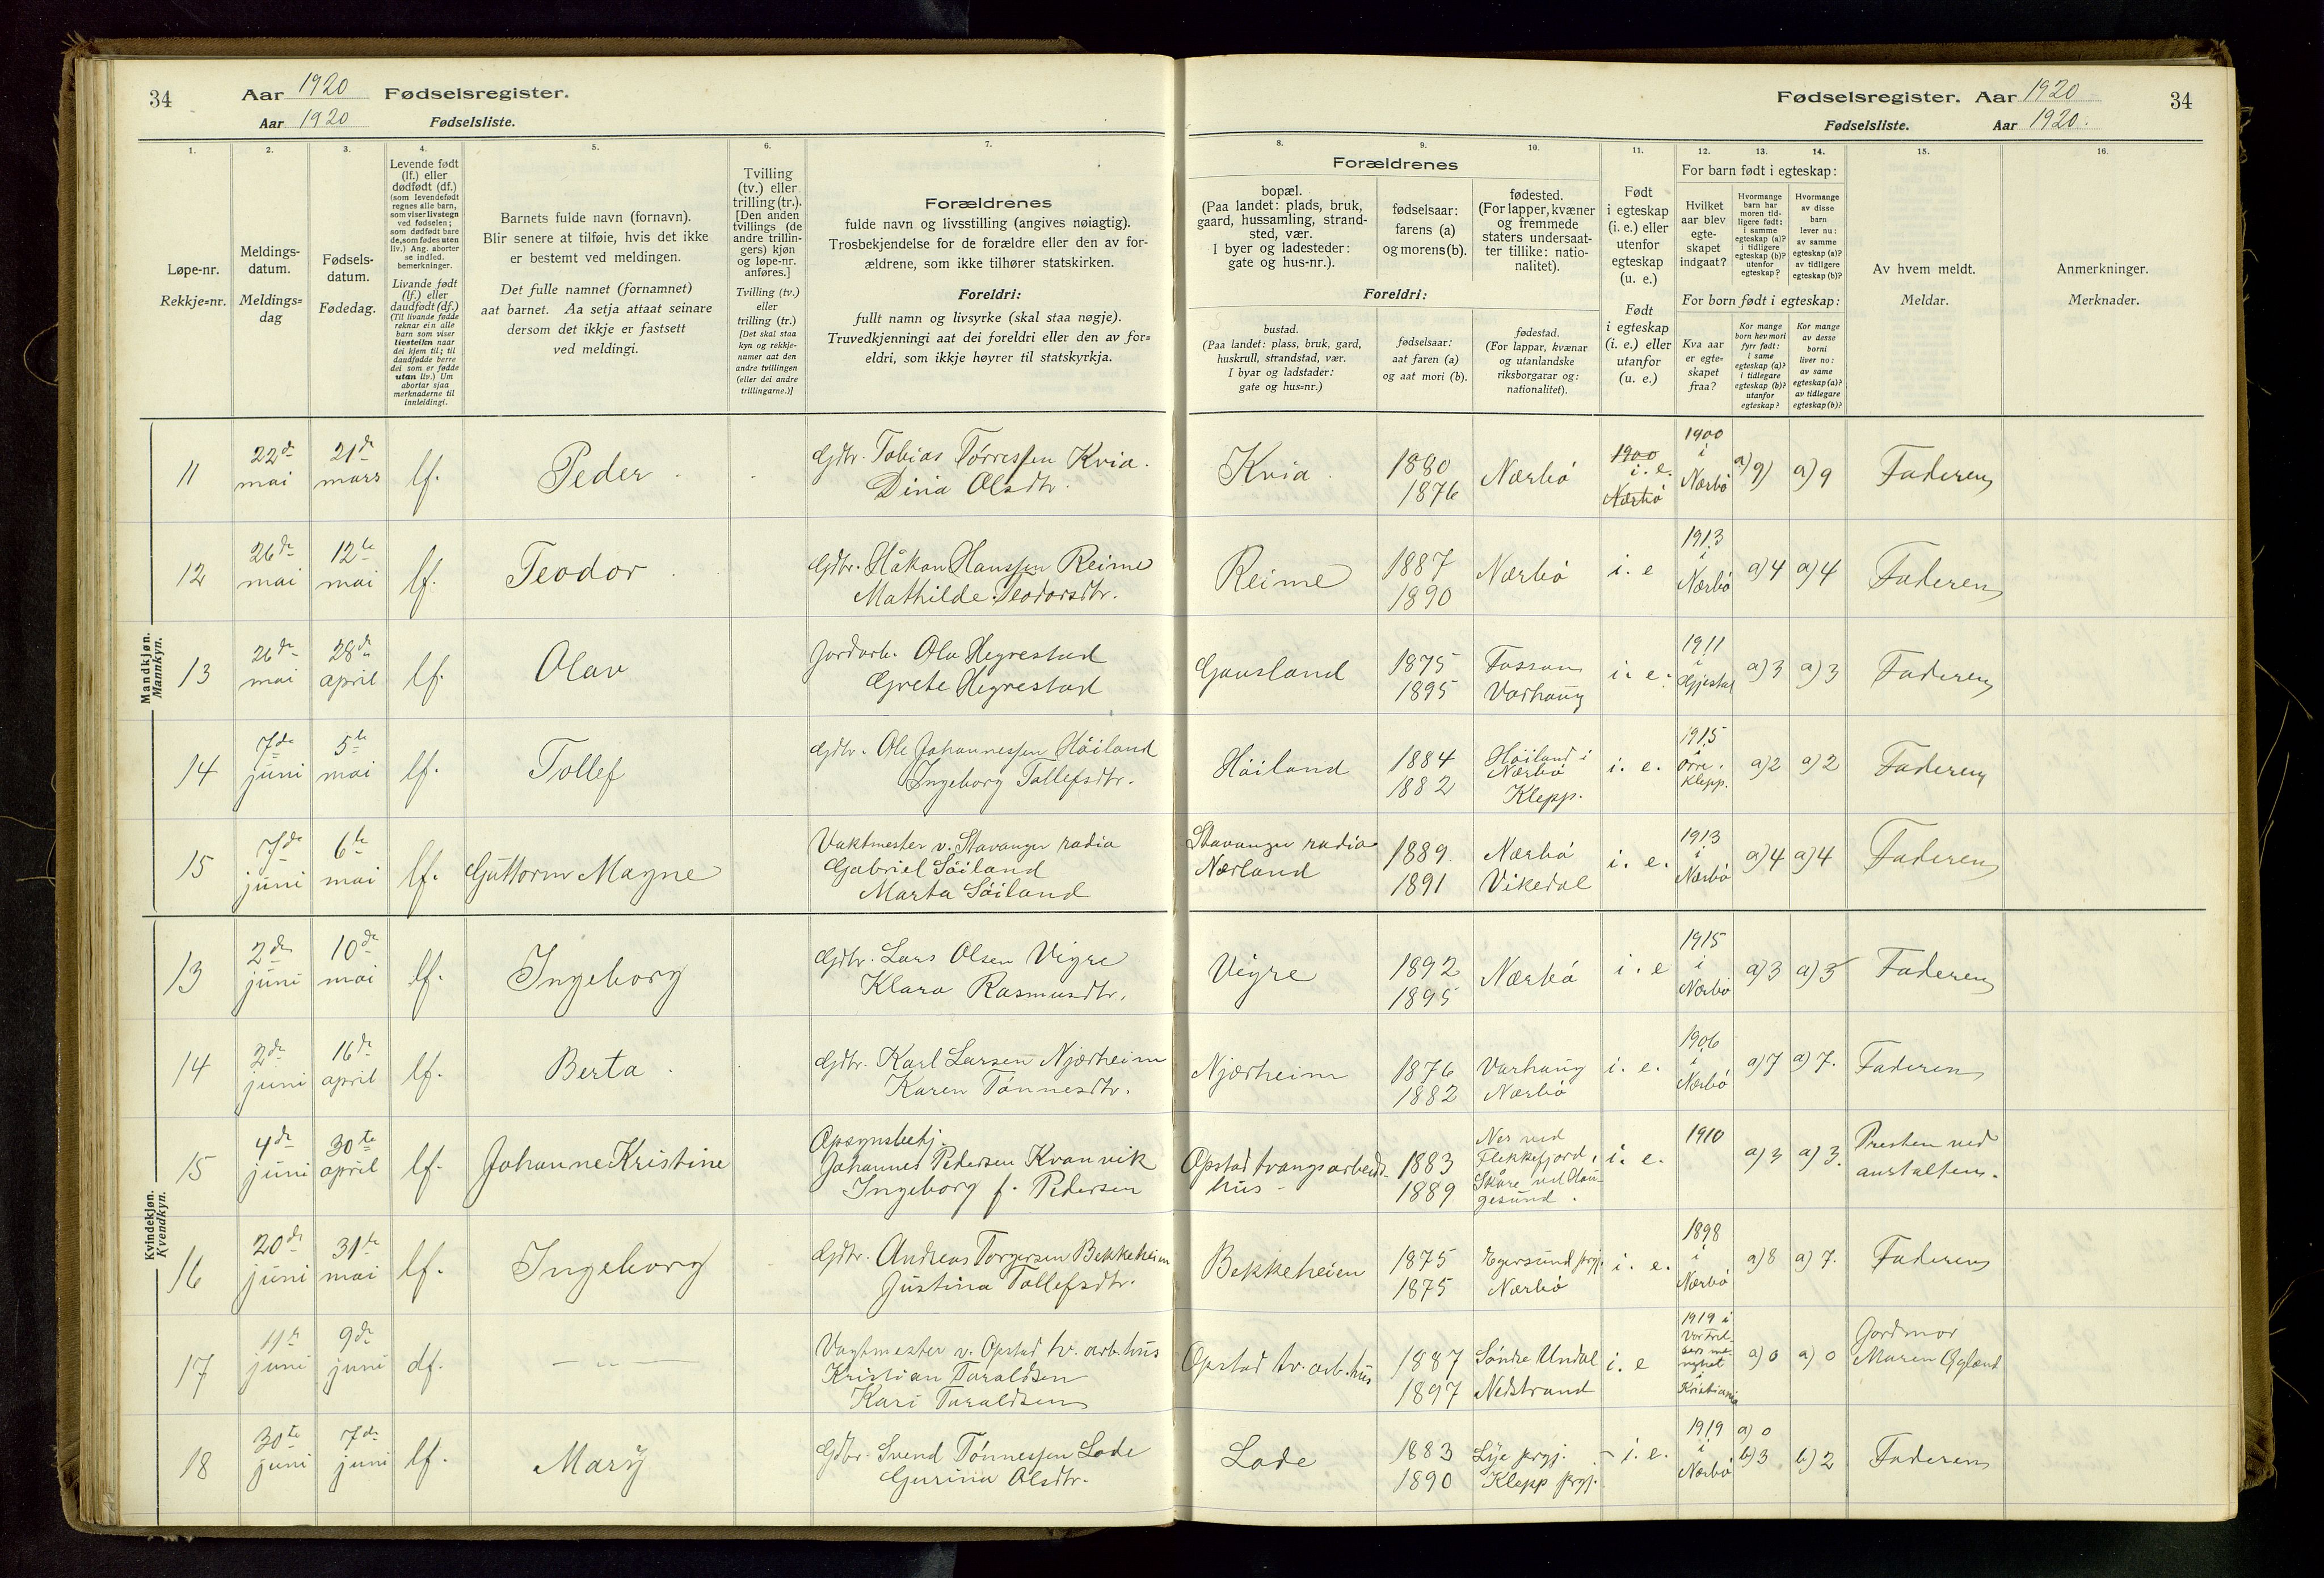 34 Aar 1920 Fødselsregister.
Aar 1920 Fødselsliste.
Fødselsregister. Aar 1920 34
Fødselsliste. Aar 1920.
1.
Løpe-nr.
Rekkje=nr.
2.
Meldings-
datum.
Meldings=
dag
3.
Fødsels-
datum.
Fødedag.
4.
Levende født
(lf.) eller
dødfødt (df.)
(som levendefødt
regnes alle barn,
som viser livstegn
ved fødselen;
som dødfødt bare
de, som fødes uten
liv.) Ang. aborter
se indled.
bemerkninger.
Livande født
(lf.) eller
daudfødt (df.)
(Til livande fødde
reknar ein alle
barn som viser
livsteikn naar
dei kjem til; til
daudfødde berre
dei som er fødde
utan liv.) Um
abortar sjaa
merknaderne til
innleidingi.
5.
Barnets fulde navn (fornavn).
Blir senere at tilføie, hvis det ikke
er bestemt ved meldingen.
Det fulle namnet (fornamnet)
aat barnet. Aa setja attaat seinare
dersom det ikkje er fastsett
ved meldingi.
6.
Tvilling
(tv.) eller
trilling (tr.).
[Den anden
tvillings (de
andre trillin-
gers) kjøn
og løpe-nr.
anføres.]
Tvilling (tv.)
eller
trilling (tr.)
[Det skal staa
kyn og rekkje-
numer aat den
andre tvillingen
(eller dei andre
trillingarne.)]
7.
Forældrenes
fulde navn og livsstilling (angives nøiagtig).
Trosbekjendelse for de forældre eller den av for-
ældrene, som ikke tilhører statskirken.
Foreldri:
fullt namn og livsyrke (skal staa nøgje).
Truvedkjenningi aat dei foreldri eller den av for=
eldri, som ikkje høyrer til statskyrkja.
Forældrenes
8.
bopæl.
(Paa landet: plads, bruk,
gaard, hussamling, strand-
sted, vær.
I byer og ladesteder:
gate og hus-nr.).
9.
fødselsaar:
farens (a)
og morens (b).
10.
fødested.
(For lapper, kvæner
og fremmede
staters undersaat-
ter tillike: natio-
nalitet).
Foreldri:
bustad.
(Paa landet: plass, bruk, gard,
huskrull, strandstad, vær.
I byar og ladstader:
gate og hus=nr.)
fødselsaar:
aat faren (a)
og aat mori (b).
fødestad.
(For lappar, kvænar
og utanlandske
riksborgarar og:
nationalitet).
11.
Født
i egteskap
(i. e.) eller
utenfor
egteskap
(u. e.)
Født
i egteskap
(i. e.) eller
utanfor
(u. e.)
12. 13. 14.
For barn født i egteskap:
Hvilket
aar blev
egte-
skapet
indgaat?
Hvormange
barn har
moren tid-
ligere født:
i samme
egteskap (a)?
i tidligere
egteskap (b)?
utenfor
egteskap?
Hvormange
av disse
barn
lever nu:
av samme
egteskap (a)?
av tidligere
egteskap (b)?
For born født i egteskap:
Kva aar
er egte-
skapet
fraa?
Kor mange
born hev mori
fyrr født:
i same
egteskap (a)?
i tidlegare
egteskap (b)?
utanfor
egteskap?
Kor mange
av desse
borni
liver no:
av same
egteskap (a)?
av tidlegare
egteskap (b)?
15.
Av hvem meldt.
Meldar.
16.
Anmerkninger.
Merknader.
Mandkjøn.
Mannkyn.
11 22de mai 21de mars lf. Peder Gdbr. Tobias Tørressen Kvia. Dina Olsdtr. Kvia 1880 1876 Nærbø 1900 i. e. Nærbø 1900 i Nærbø a) 9) a) 9 Faderen
12 26de mai 12te mai lf. Teodor Gdbr. Håkon Hanssen Reime Mathilde Teodorsdtr. Reime 1887 1890 Nærbø i. e 1913 i Nærbø a) 4 a) 4 Faderen
13 26de mai 28de april lf. Olav Jordarb. Ola Hegrestad Grete Hegrestad Gausland 1875 1895 Fossan Varhaug i. e. 1911 i Gjestal a) 3 a) 3 Faderen
14 7de juni 5te mai lf. Tollef Gdbr. Ole Johannessen Höiland Ingeborg Tollefsdtr. Höiland 1884 1882 Höiland i Nærbö Klepp. i. e. 1915 i Orre, Klepp. a) 2 a) 2 Faderen
15 7de juni 6te mai lf. Guttorm Magne Vaktmester v. Stavanger radio Gabriel Söiland Marta Söiland Stavanger radio Nærland 1889 1891 Nærbø Vikedal i. e. 1913 i Nærbø a) 4 a) 4 Faderen
Kvindekjøn.
Kvendkyn.
13 2de juni 10de mai lf. Ingeborg Gdbr. Lars Olsen Vigre Klara Rasmusdtr. Vigre 1892 1895 Nærbø i. e 1915 i Nærbø a) 3 a) 3 Faderen
14 2de juni 16de april lf. Berta Gdbr. Karl Larsen Njærheim Karen Tønnesdtr. Njærheim 1876 1882 Varhaug Nærbø i. e. 1906 i Nærbø a) 7 a) 7. Faderen
15 4de juni 30te april lf. Johanne Kristine Opsynsbetj. Johannes Pedersen Kvanvik Ingeborg f. Pedersen Opstad tvangsarbeids- hus 1883 1889 Nes ved Flekkefjord, Skåre ved Hau- gesund. i. e. 1910 a) 3 a) 3. Presten ved anstalten.
16 20de juni 31te mai lf. Ingeborg Gdbr. Andreas Torgersen Bekkeheien Justina Tollefsdtr. Bekkeheien 1875 1875 Egersund prgj. Nærbø i. e. 1898 i Nærbø a) 8 a) 7. Faderen
17 11te juni 9de juni df. — „ — Vagtmester v. Opstad tv. arb. hus Kristian Taraldsen Kari Taraldsen Opstad tv. arb. hus 1887 1897 Söndre Undal Nedstrand i. e 1919 i Vor Frel- sers me- nighet i Kristiania a) 0 a) 0 Jordmor Maren Ogland
18 30te juni 7de juni lf. Mary Gdbr. Svend Tønnessen Lode Gurina Olsdtr. Lode 1883 1890 Lye prgj. Klepp prgj. - i. e. 1919 i Nærbø a) 0 b) 3 b) 2 Faderen